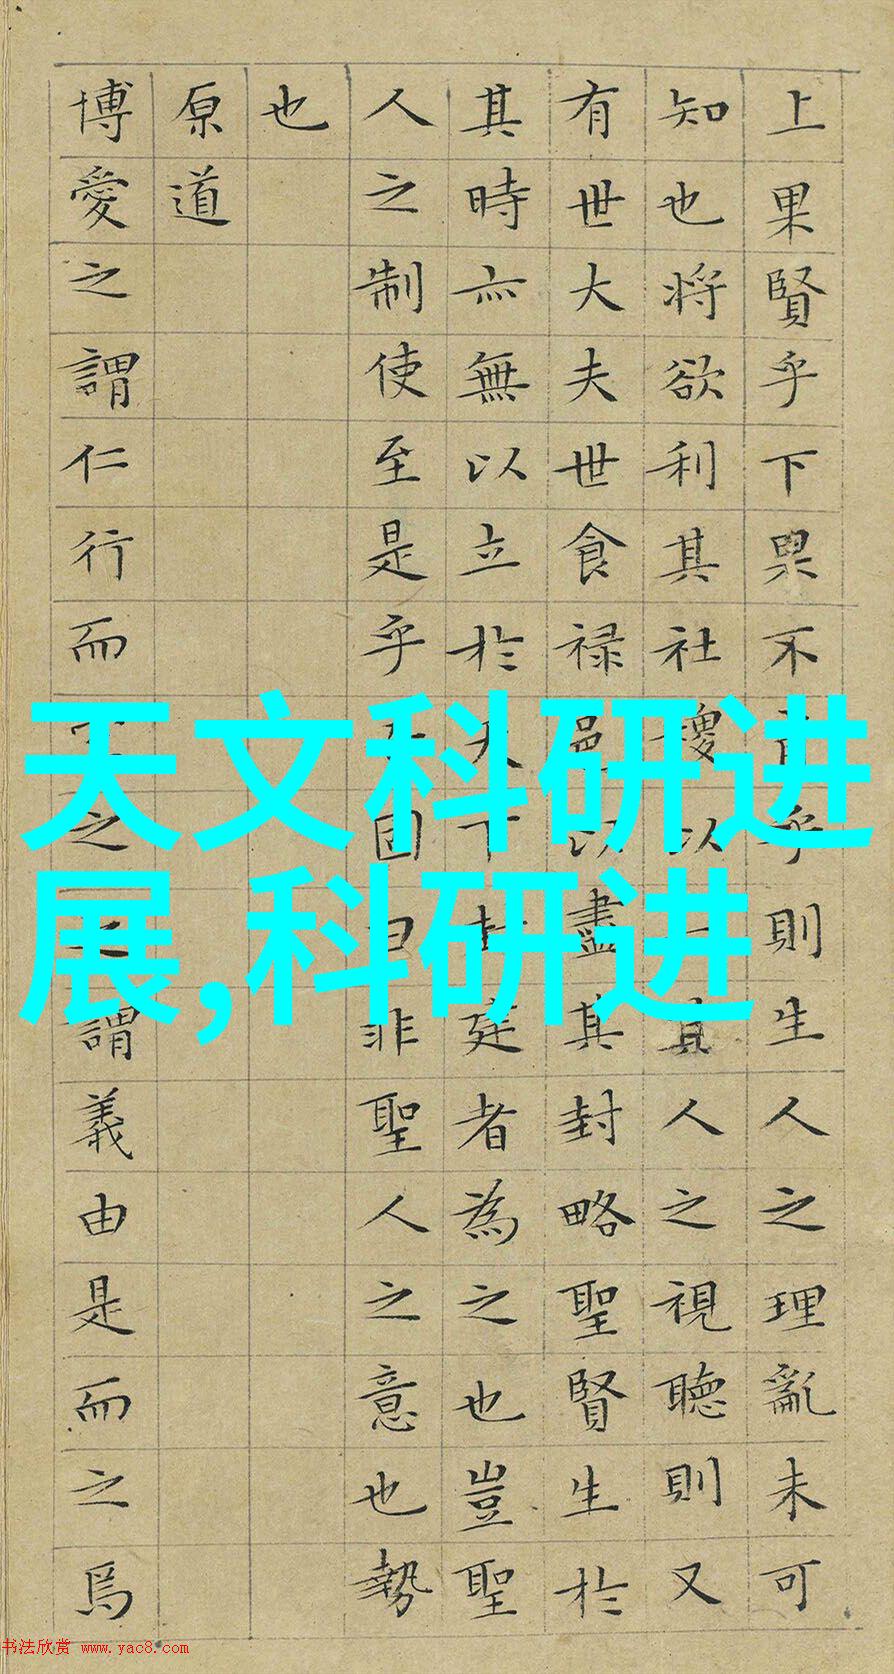 天文科研进
展,科研进
上果賢乎下果不乎則生人之理亂未可
知也將欲利其社稷以一其人之視聽則又
有世大夫世食禄邑以盡其封略聖賢生於
其時亦無以立於天下封建者為之也豈聖
人之制使至是乎固曰非聖人之意也勢
也
原道
博愛之謂仁行而之之謂義由是而之焉
书法欣赏 www.yac8.com